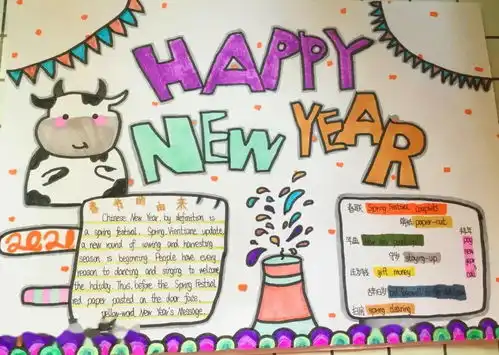 HAPPY
NEW YEAR
春节的由来
Chinese New Year, by definition is
a spring festival. Spring Vorntiane update,
a new round of sowing and harvesting
season is beginning. People have every
reason to dancing and singing to welcome
the holiday. Thus, before the Spring Festival
red paper pasted on the door face,
yellow-word New Year's Message.
2021
春联 Spring Festival couplets
剪纸 paper-cut
年画
守岁 staying-up
压岁钱 gift money
扫房 spring cleaning
拜年
pay
new
year
call